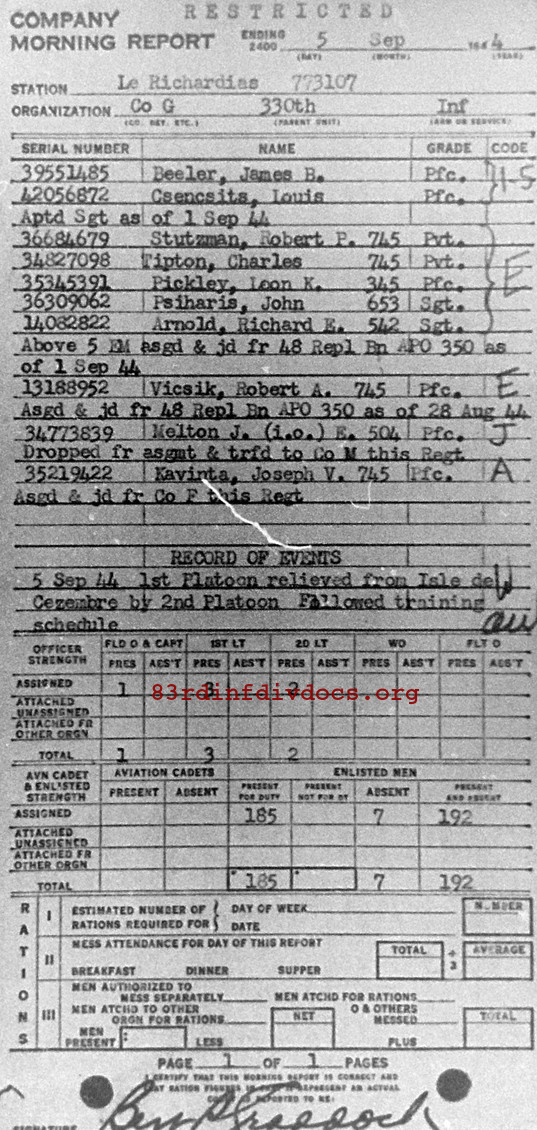 RESTRICTED
COMPANY
MORNING REPORT ENDING 2400 5 Sep 1944
(DAY) (MONTH) (YEAR)
STATION Le Richardias 773107
ORGANIZATION Co G 330th Inf
(CO. DET. ETC.) (PARENT UNIT) (ARM OR SERVICE)
SERIAL NUMBER NAME GRADE CODE
39551485 Beeler, James B. Pfc.
42056872 Csencsits, Louis Pfc.
Aptd Sgt as of 1 Sep 44
36684679 Stutzman, Robert P. 745 Pvt.
34827098 Tipton, Charles 745 Pvt.
35345391 Pickley, Leon K. 345 Pfc. E
36309062 Psiharis, John 653 Sgt.
14082822 Arnold, Richard E. 542 Sgt.
Above 5 EM asgd & jd fr 48 Repl Bn APO 350 as
of 1 Sep 44
13188952 Vicsik, Robert A. 745 Pfc. E
Asgd & jd fr 48 Repl Bn APO 350 as of 28 Aug 44
34773839 Melton J. (i.o.) E. 504 Pfc. J
Dropped fr asgmt & trfd to Co M this Regt
35219422 Kavinta, Joseph V. 745 Pfc. A
Asgd & jd fr Co F this Regt
RECORD OF EVENTS
5 Sep 44 1st Platoon relieved from Isle de
Cezembre by 2nd Platoon Followed training
schedule
OFFICER STRENGTH FLD O & CAPT 1ST LT 2D LT WO FLT O
PRES ABS'T PRES ABS'T PRES ABS'T PRES ABS'T PRES ABS'T
ASSIGNED 1 3 2
83rdinfdivdocs.org
ATTACHED UNASSIGNED
ATTACHED FR OTHER ORGN
TOTAL 1 3 2
AVN CADET & ENLISTED STRENGTH AVIATION CADETS ENLISTED MEN
PRESENT ABSENT PRESENT FOR DUTY PRESENT NOT FOR DY ABSENT PRESENT AND ABSENT
ASSIGNED 185 7 192
ATTACHED UNASSIGNED
ATTACHED FR OTHER ORGN
TOTAL 185 7 192
RATIONS
I ESTIMATED NUMBER OF RATIONS REQUIRED FOR DAY OF WEEK NUMBER
DATE
II MESS ATTENDANCE FOR DAY OF THIS REPORT TOTAL ÷ 3 AVERAGE
BREAKFAST DINNER SUPPER
III MEN AUTHORIZED TO MESS SEPARATELY MEN ATCHD FOR RATIONS
MEN ATCHD TO OTHER ORGN FOR RATIONS NET O & OTHERS MESSED TOTAL
MEN PRESENT LESS PLUS
PAGE 1 OF 1 PAGES
I CERTIFY THAT THIS MORNING REPORT IS CORRECT AND
SIGNATURE